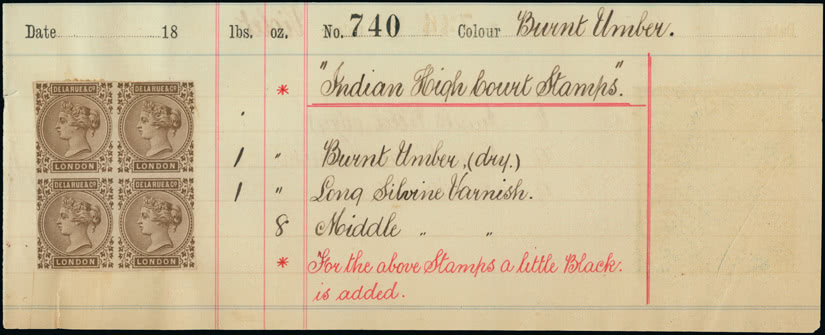 Date 18 lbs. oz. No. 740 Colour Burnt Umber.
* "Indian High Court Stamps".
DE LA RUE & Cº DE LA RUE & Cº
LONDON LONDON
1 " Burnt Umber, (dry.)
DE LA RUE & Cº DE LA RUE & Cº
1 " Long Silvine Varnish.
8 Middle " "
LONDON LONDON
* For the above Stamps a little Black.
is added.